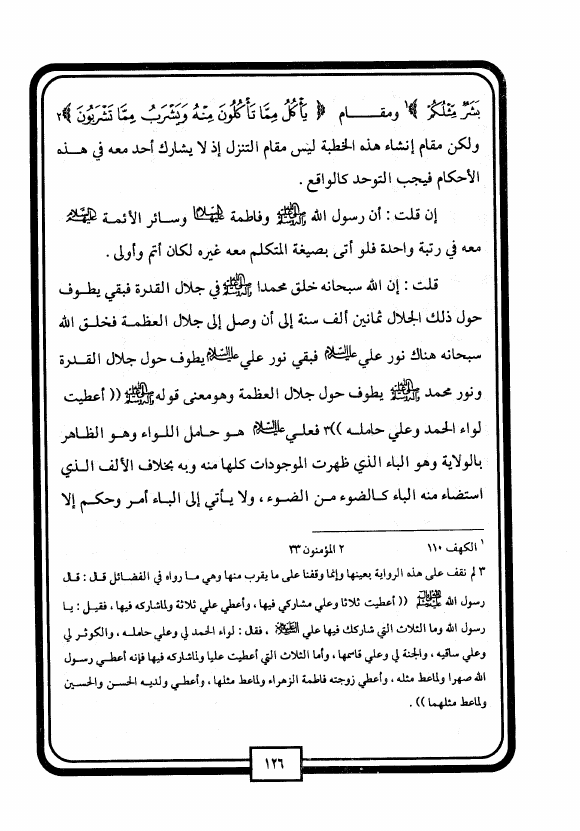 بَشَرٌ مِّثْلُكُمْ ﴾١ ومقـــام ﴿ يَأْكُلُ مِمَّا تَأْكُلُونَ مِنْهُ وَيَشْرَبُ مِمَّا تَشْرَبُونَ ﴾٢
ولكن مقام إنشاء هذه الخطبة ليس مقام التنزل إذ لا يشارك أحد معه في هـــذه
الأحكام فيجب التوحد كالواقع .
إن قلت : أن رسول الله ﷺ وفاطمة عليها السلام وسـائر الأئمـة عليهم السلام
معه في رتبة واحدة فلو أتى بصيغة المتكلم معه غيره لكان أتم وأولى .
قلت : إن الله سبحانه خلق محمدا ﷺ في جلال القدرة فبقي يطـوف
حول ذلك الجلال ثمانين ألف سنة إلى أن وصل إلى جلال العظمـة فخلـق الله
سبحانه هناك نور علي عليه السلام فبقي نور علي عليه السلام يطوف حول جلال القـدرة
ونور محمد ﷺ يطوف حول جلال العظمة وهومعنى قوله ﷺ (( أعطيت
لواء الحمد وعلي حاملـه ))٣ فعلـي عليه السلام هـو حـامل اللـواء وهـو الظـاهر
بالولاية وهو الباء الذي ظهرت الموجودات كلها منه وبه بخلاف الألف الـذي
استضاء منه الباء كـالضوء مـن الضـوء ، ولا يـأتي إلى البـاء أمـر وحكـم إلا
١ الكهف ١١٠ ٢ المؤمنون ٣٣
٣ لم نقف على هذه الرواية بعينها وإنما وقفنا على ما يقرب منها وهي مـا رواه في الفضـائل قـال : قـال
رسول الله ﷺ (( أعطيت ثلاثا وعلي مشاركي فيها ، وأعطي علي ثلاثة ولماشاركه فيها ، فقيـل : يـا
رسول الله وما الثلاث التي شاركك فيها علي عليه السلام ، فقـال : لـواء الحمـد لي وعلـي حاملـه ، والكوثـر لي
وعلـي ساقيه ، والجنة لي وعلي قاسمها ، وأما الثلاث التي أعطيت عليا ولماشاركه فيها فإنه أعطـي رسـول
الله صهرا ولماعط مثله ، وأعطي زوجته فاطمة الزهراء ولماعط مثلها ، وأعطـي ولديـه الحسـن والحسـين
ولماعط مثلهما )) .
١٢٦